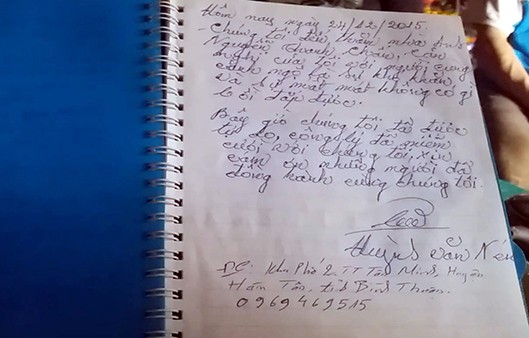 Hôm nay ngày 24/12/2015.
- Chúng tôi đến thăm nhà Anh
Nguyễn Thanh Chấn, Cảm
nghĩ của tôi với người cùng
cảnh ngộ là sự khó khăn,
và sự mất mát không có gì
bồi đắp được.
Bây giờ chúng tôi đã được
tự do, công lý đã mỉm
cười với chúng tôi, xin
cảm ơn những người đã
đồng hành cùng chúng tôi.
Huỳnh Văn Nén
ĐC: Khu Phố 2, TT Tân Minh, Huyện
Hàm Tân, tỉnh Bình Thuận.
0969469515